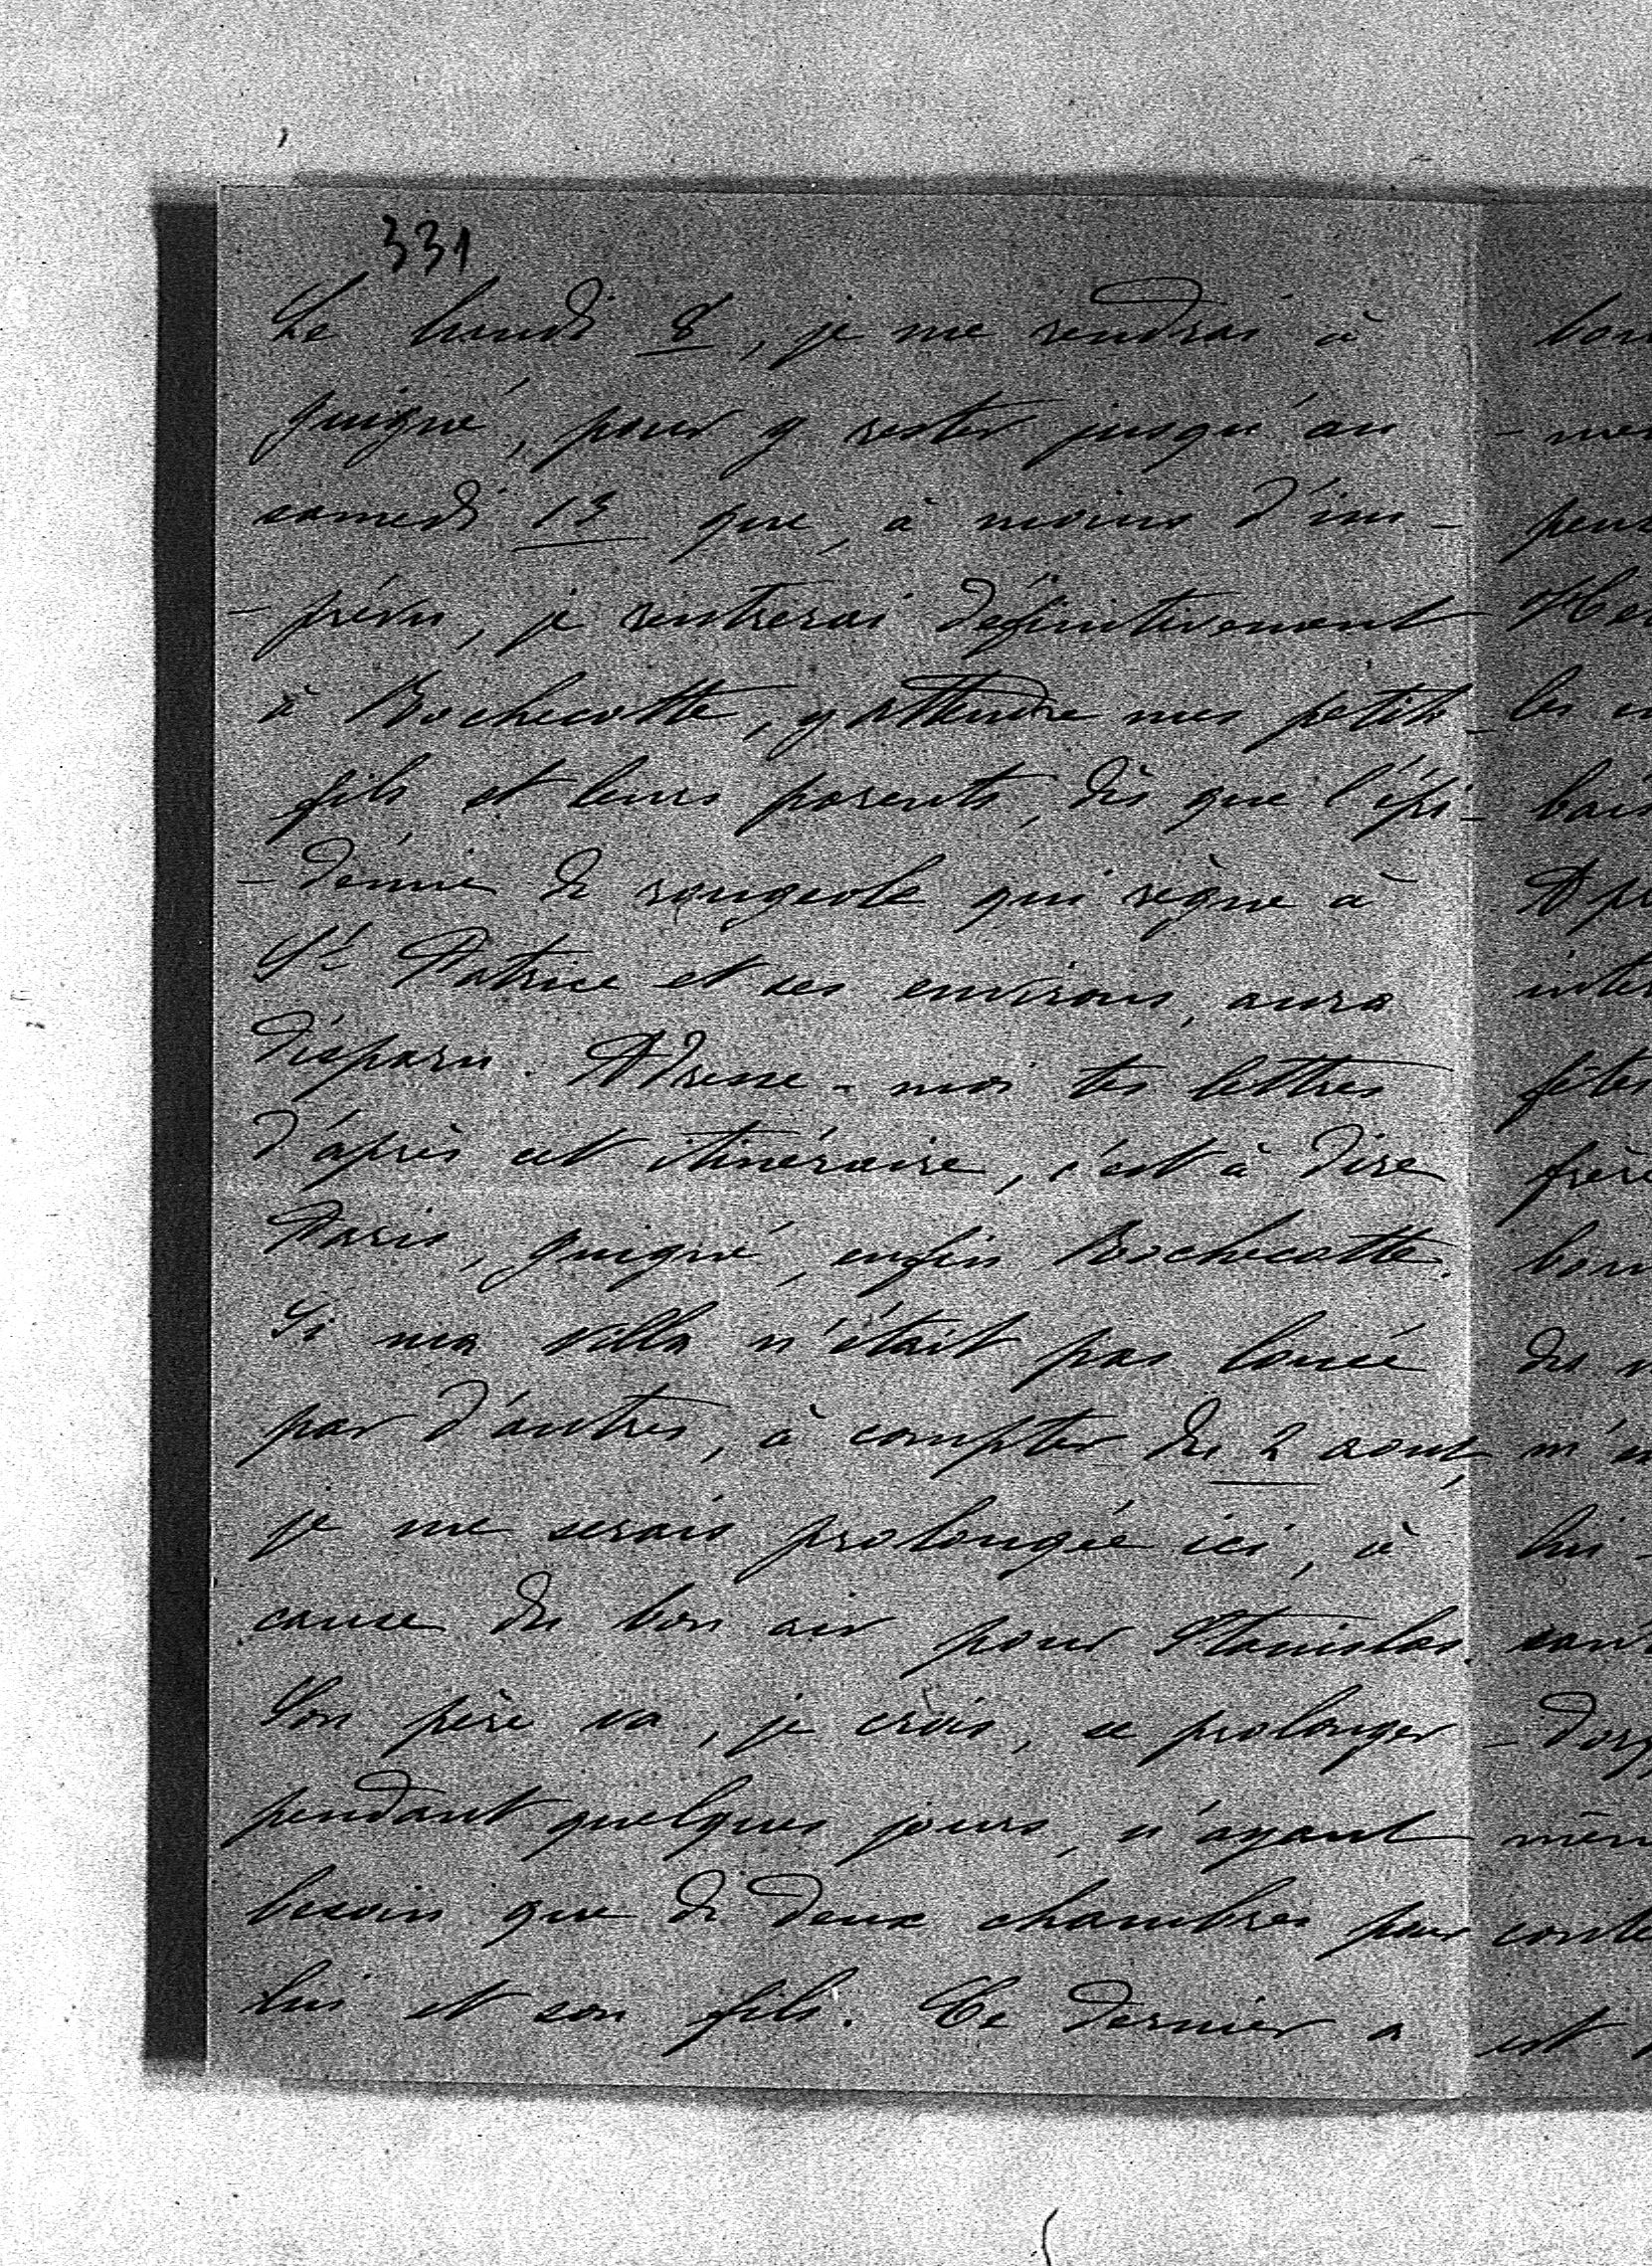 331
Le lundi 8, je me rendrai à
guigné, pour y rester jusqu'au
samedi 13 que, à moins d'im-
-prévu, je rentrerai définitivement
à Rochecotte, y attendre mes petits-
fils et leurs parents, dès que l'épi-
-démie de rougeole qui règne à
St Patrice et ses environs, aura
disparu. Adresse-moi tes lettres
d'après cet itinéraire, c'est à dire
Paris, guigné, enfin Rochecotte.
Si ma villa n'était pas louée
par d'autres, à compter du 2 aout,
je me serais prolongée ici, à
cause du bon air pour Stanislas.
Son père va, je crois, se prolonger
pendant quelques jours, n'ayant
besoin que de deux chambres pour
lui et son fils. Ce dernier a